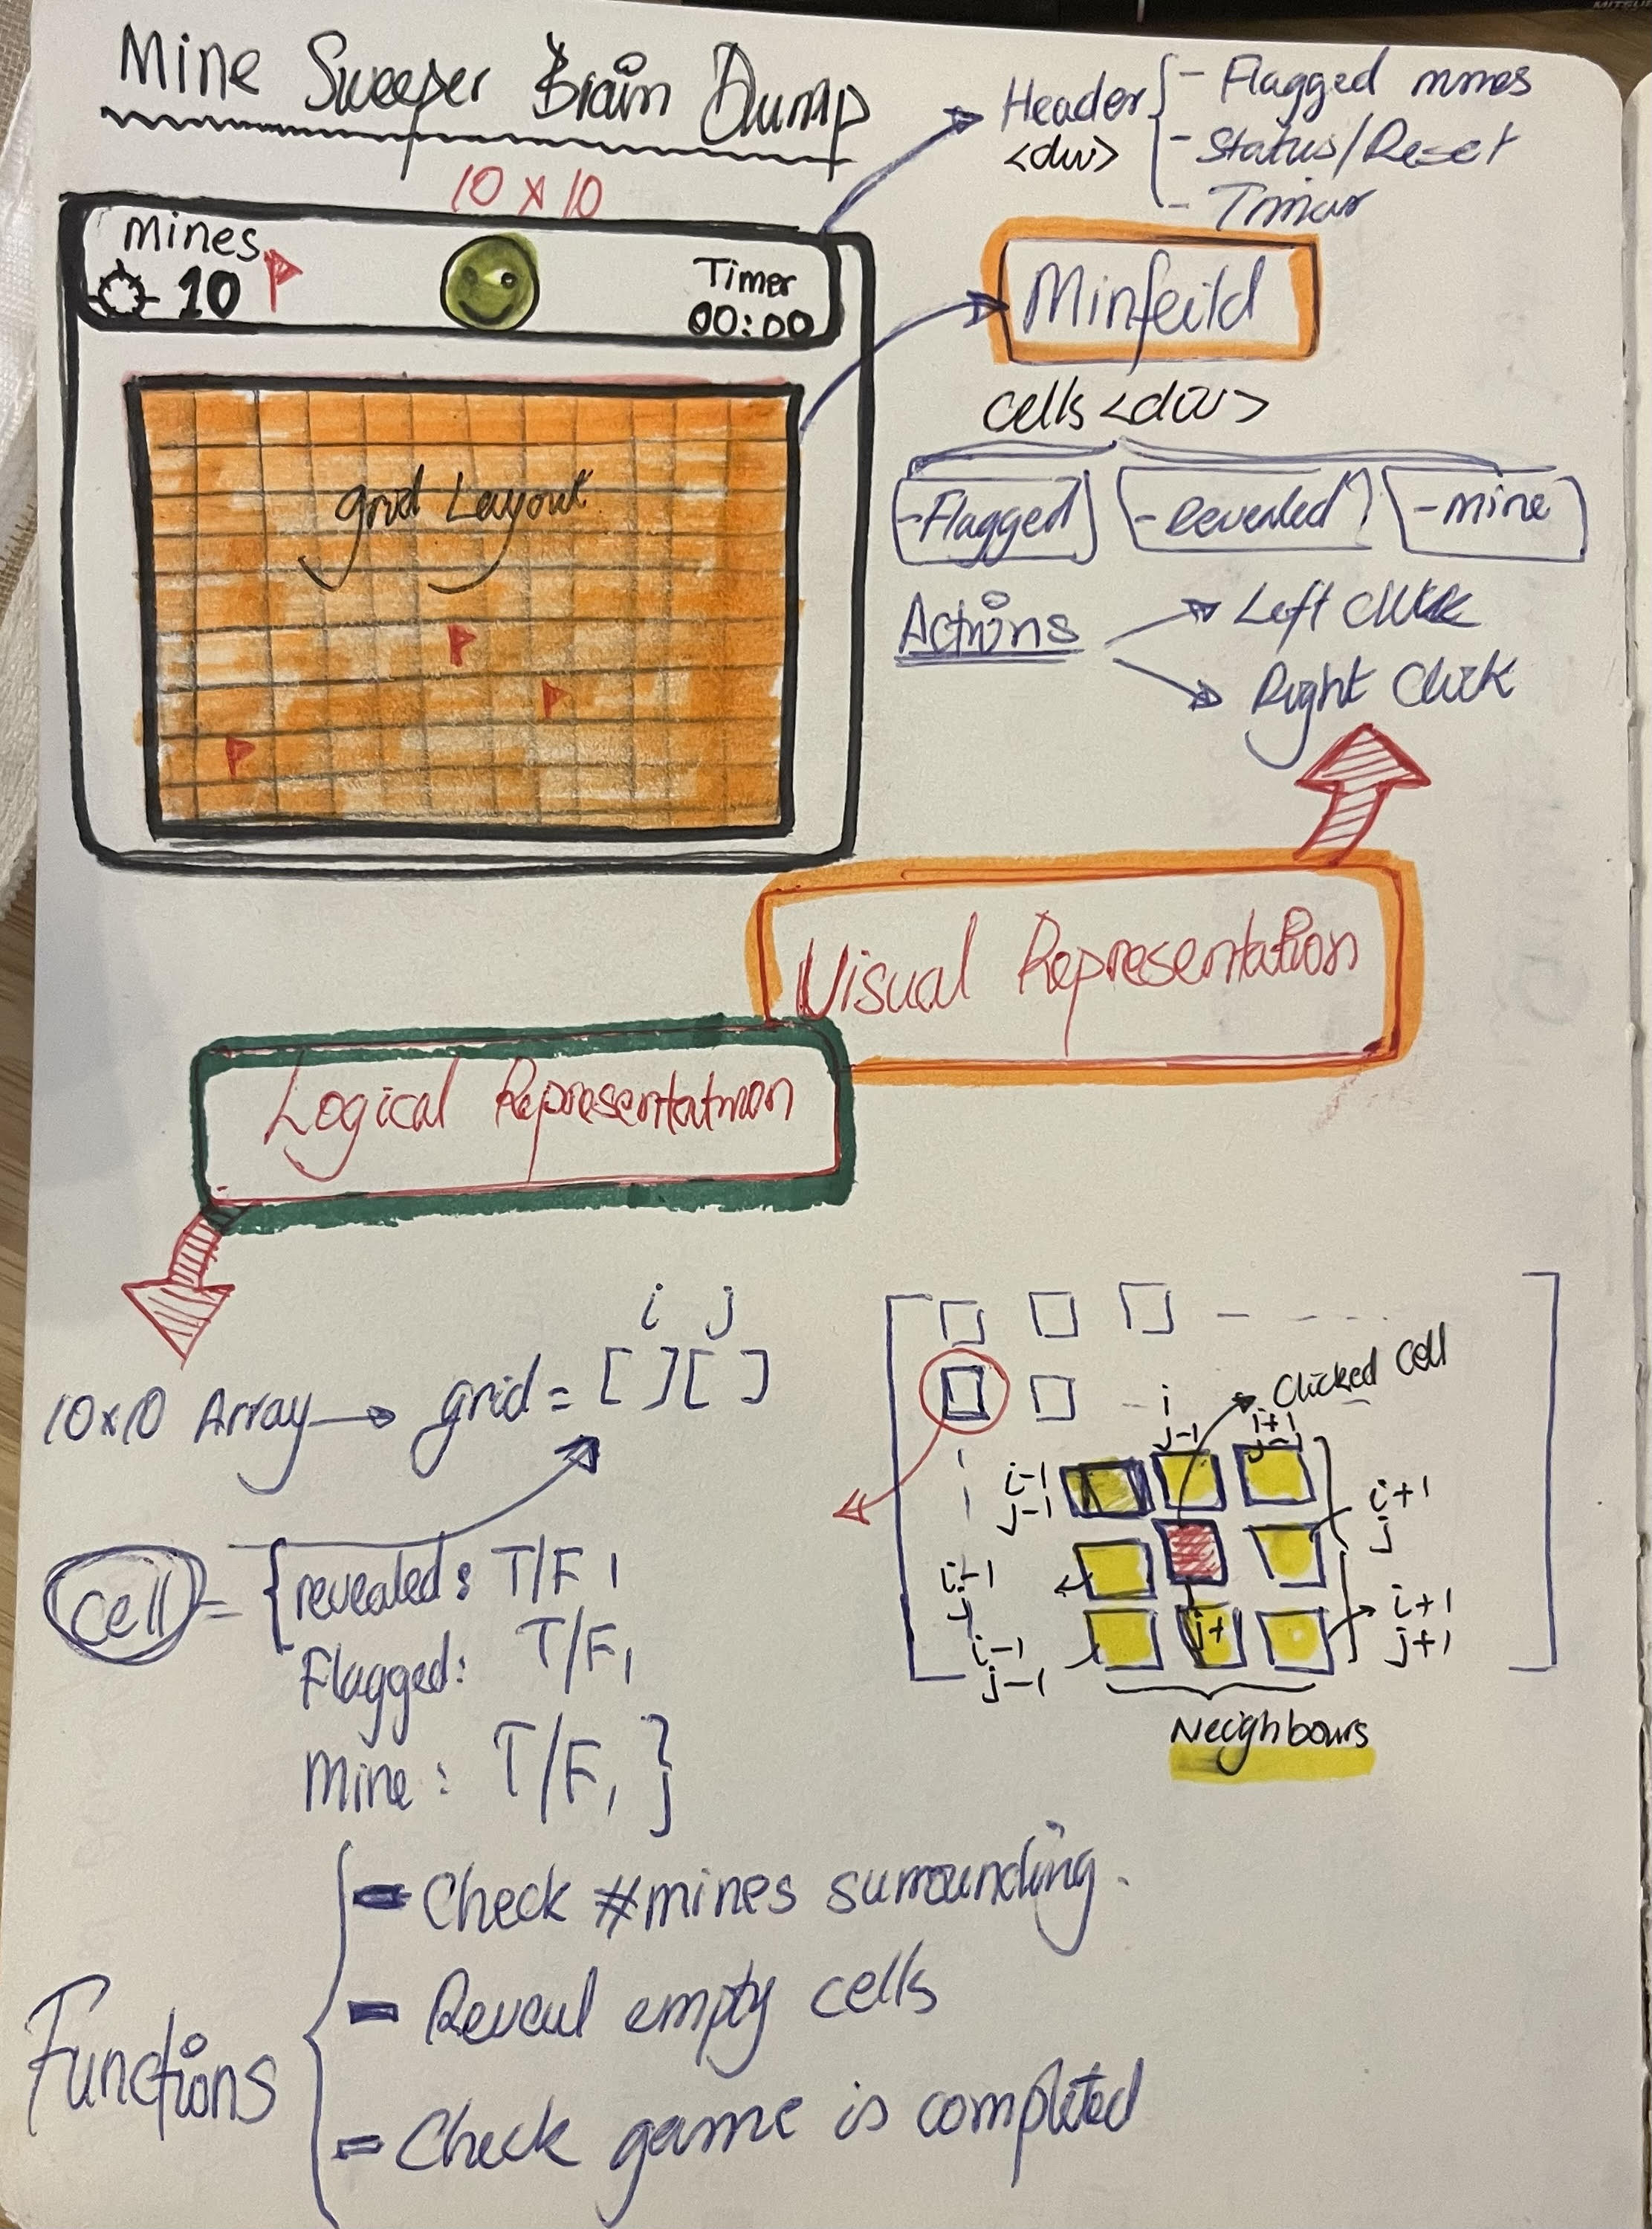 Mine Sweeper Brain Dump
10 x 10
Mines
10
Timer
00:00
grid Layout
Header
<div>
- Flagged mines
- Status/Reset
- Timer
Minfeild
cells <div>
- Flagged
- Revealed
- mine
Actions
Left Click
Right Click
Visual Representation
Logical Representation
i j
10x10 Array → grid = [ ][ ]
cell = { revealed: T/F,
Flagged: T/F,
Mine: T/F, }
Clicked Cell
i-1
j-1
i
j-1
i+1
j-1
i+1
j
i-1
j
j+1
i+1
j+1
i-1
j-1
Neighbours
Functions
- Check #mines surrounding.
- Reveal empty cells
- Check game is completed